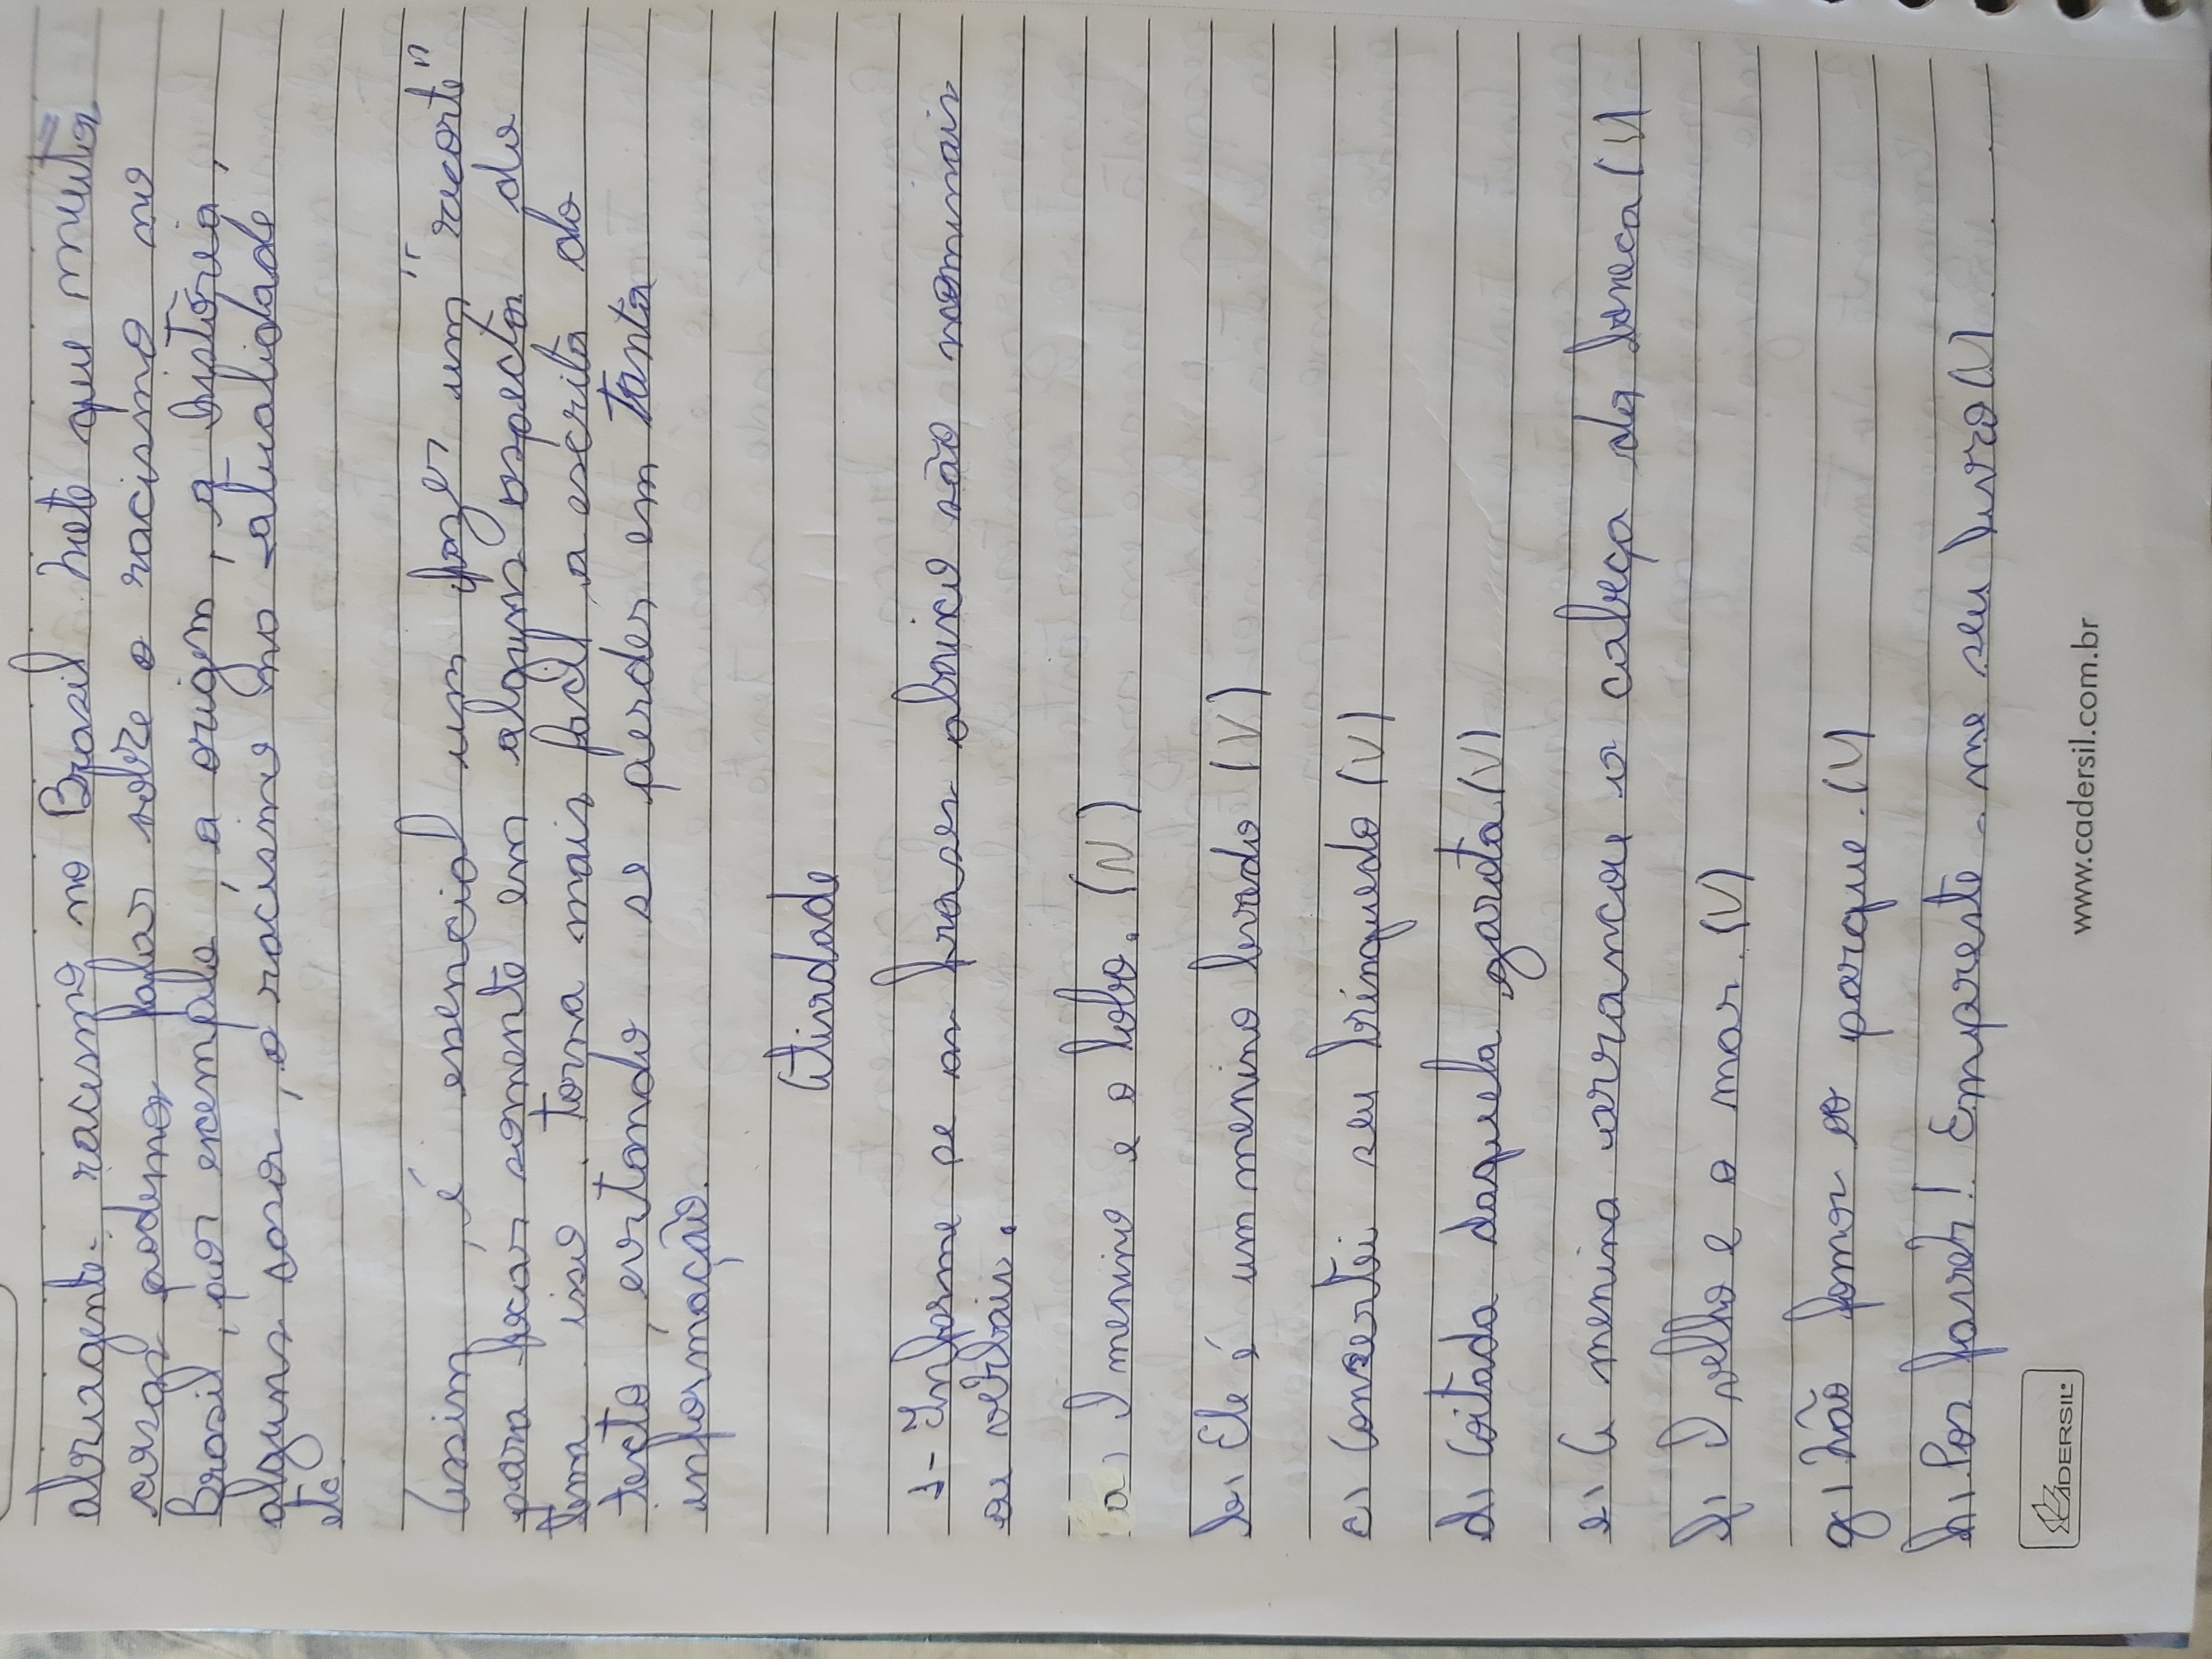 abrangente. racismo no Brasil. Note que muita
coisas podemos falar sobre o racismo no
Brasil, por exemplo, a origem, a história,
alguns casos, o racismo na atualidade
etc.
Assim, é esencial um fazer um "recorte"
para focar somente em alguns aspectos do
tema. isso torna mais facil a escrita do
texto, evitando se perder em tanta
informação.
Atividade
1- Informe se as frases abaixo são nominais
ou verbais.
a) O menino e o lobo. (N)
b) Ele é um menino levado (V)
c) Consertei seu brinquedo (V)
d) Coitada daquela garota (V)
e) A menina arrancou a cabeça da boneca (V)
f) O velho e o mar. (V)
g) Não fomos ao parque. (V)
h) Por favor! Empreste-me seu livro (V)
CADERSIL
www.cadersil.com.br